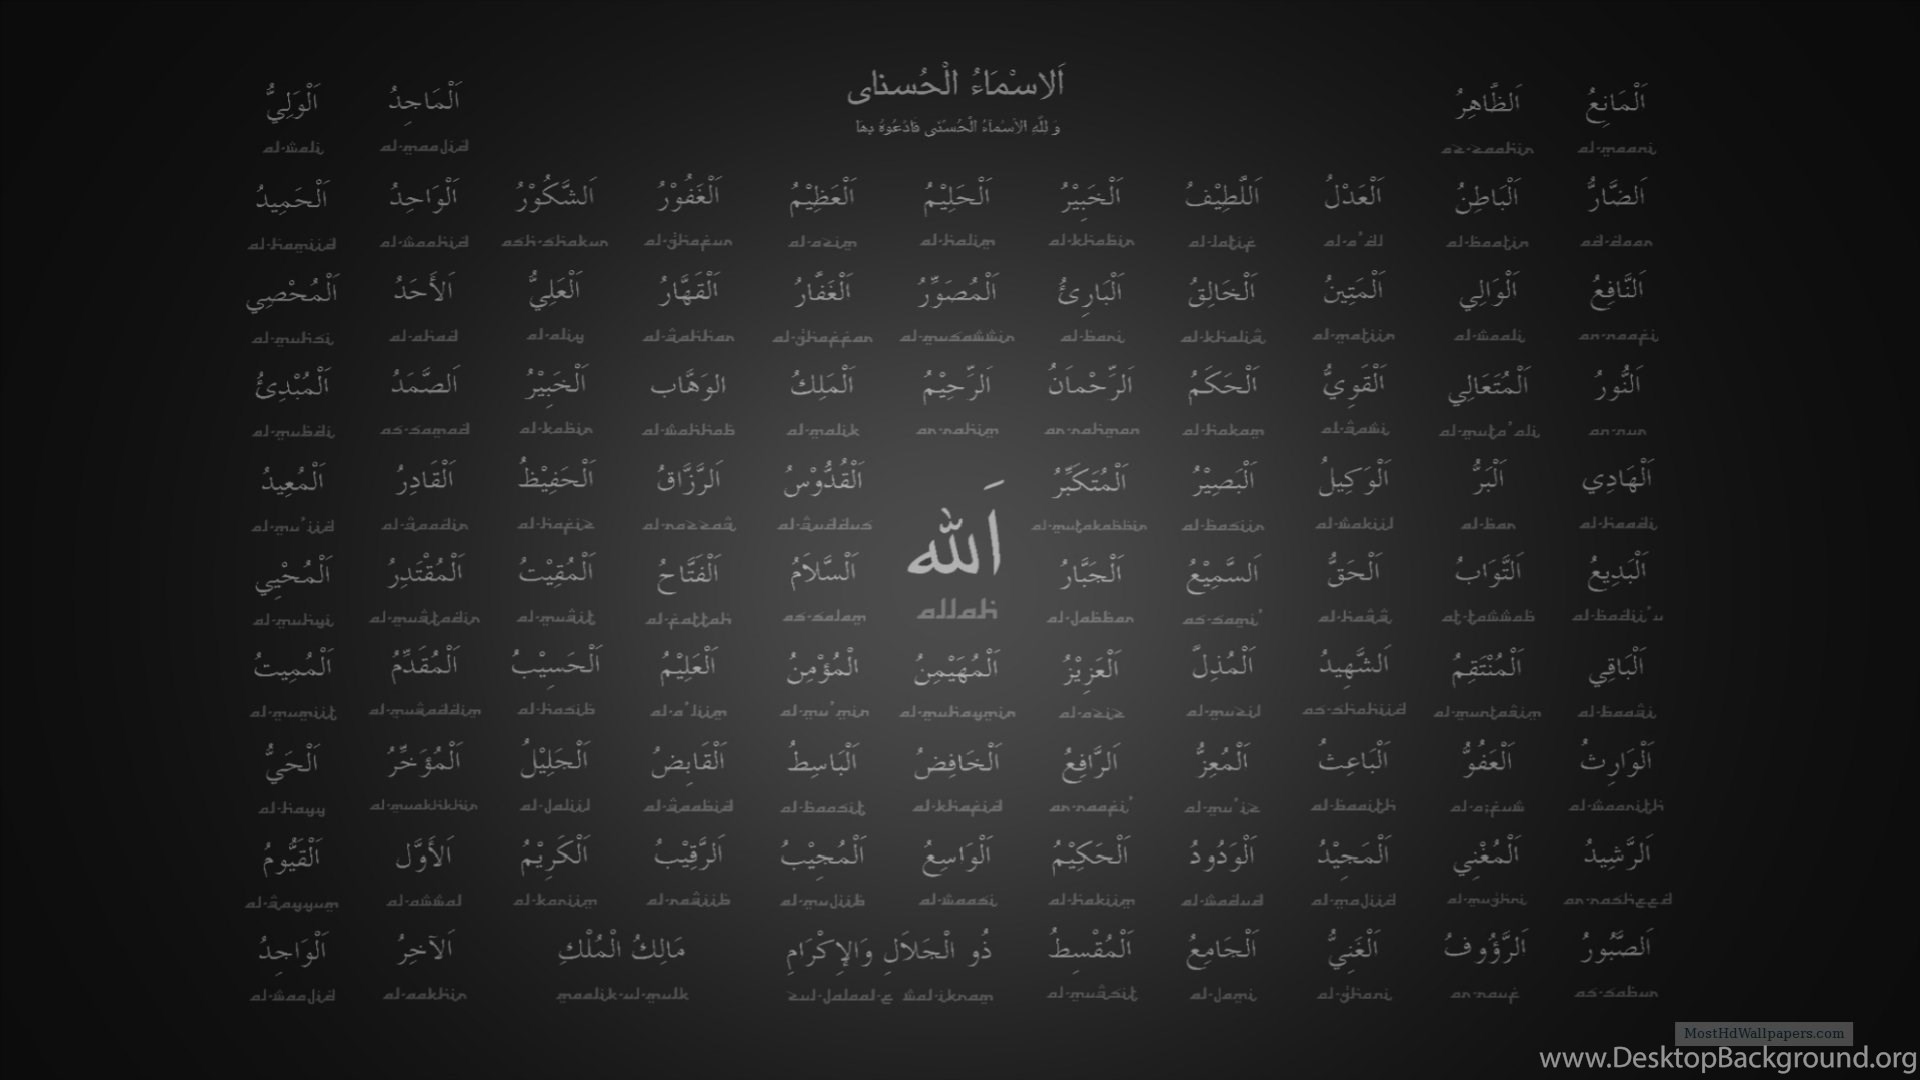 اَلاِسْمَاءُ الْحُسنای
وَ لِلّٰهِ الأَسْمَاءُ الْحُسْنٰى فَادْعُوهُ بِهَا
اَلْمَانِعُ اَلظَّاهِرُ اَلْمَاجِدُ اَلْوَلِيُّ
al-wali al-maajid az-zaahir al-maani
اَلضَّارُّ اَلْبَاطِنُ اَلْعَدْلُ اَللَّطِيْفُ اَلْخَبِيْرُ اَلْحَلِيْمُ اَلْعَظِيْمُ اَلْغَفُوْرُ اَلشَّكُوْرُ اَلْوَاحِدُ اَلْحَمِيدُ
al-hamiid al-waahid ash-shakur al-ghafur al-azim al-halim al-khabir al-latif al-a'dl al-baatin ad-daar
اَلنَّافِعُ اَلْوَالِي اَلْمَتِينُ اَلْخَالِقُ اَلْبَارِئُ اَلْمُصَوِّرُ اَلْغَفَّارُ اَلْقَهَّارُ اَلْعَلِيُّ اَلأَحَدُ اَلْمُحْصِي
al-muhsi al-ahad al-aliy al-qahhar al-ghaffar al-musawwir al-bari al-khaliq al-matiin al-waali an-naafi
اَلنُّورُ اَلْمُتَعَالِي اَلْقَوِيُّ اَلْحَكَمُ اَلرَّحْمٰنُ اَلرَّحِيْمُ اَلْمَلِكُ الوَهَّاب اَلْخَبِيْرُ اَلصَّمَدُ اَلْمُبْدِئُ
al-mubdi as-samad al-kabir al-wahhab al-malik ar-rahim ar-rahman al-hakam al-qawi al-muta'ali an-nur
اَلْهَادِي اَلْبَرُّ اَلْوَكِيلُ اَلْبَصِيْرُ اَلْمُتَكَبِّرُ اَلْقُدُّوْسُ اَلرَّزَّاقُ اَلْحَفِيْظُ اَلْقَادِرُ اَلْمُعِيدُ
al-mu'iid al-qaadir al-hafiz al-razzaq al-quddus al-mutakabbir al-basiir al-wakiil al-bar al-haadi
اَلله
allah
اَلْبَدِيعُ اَلتَّوَابُ اَلْحَقُّ اَلسَّمِيْعُ اَلْجَبَّارُ اَلسَّلاَمُ اَلْفَتَّاحُ اَلْمُقِيْتُ اَلْمُقْتَدِرُ اَلْمُحْيِي
al-muhyi al-muqtadir al-muqit al-fattah as-salam al-jabbar as-sami' al-haqq at-tawwab al-badii'u
اَلْبَاقِي اَلْمُنْتَقِمُ اَلشَّهِيدُ اَلْمُذِلَّ اَلْعَزِيْزُ اَلْمُهَيْمِنُ الْمُؤْمِنُ اَلْعَلِيْمُ اَلْحَسِيْبُ اَلْمُقَدِّمُ اَلْمُمِيتُ
al-mumiit al-muqaddim al-hasib al-a'liim al-mu'min al-muhaymin al-aziz al-muzil as-shahiid al-muntaqim al-baaqi
اَلْوَارِثُ اَلْعَفُوُّ اَلْبَاعِثُ اَلْمُعِزُّ اَلرَّافِعُ اَلْخَافِضُ اَلْبَاسِطُ اَلْقَابِضُ اَلْجَلِيْلُ اَلْمُؤَخِّرُ اَلْحَيُّ
al-hayy al-muakhkhir al-jaliil al-qaabid al-baasit al-khafid ar-raafi' al-mu'iz al-baaith al-waarith
اَلرَّشِيدُ اَلْمُغْنِي اَلْمَجِيْدُ اَلْوَدُودُ اَلْحَكِيْمُ اَلْوَاسِعُ اَلْمُجِيْبُ اَلرَّقِيْبُ اَلْكَرِيْمُ اَلأَوَّل اَلْقَيُّومُ
al-qayyum al-awwal al-kariim al-raqiib al-mujiib al-waasi al-hakiim al-wadud al-majiid al-mughni ar-rasheed
اَلصَّبُورُ اَلرَّؤُوفُ اَلْغَنِيُّ اَلْجَامِعُ اَلْمُقْسِطُ ذُو الْجَلاَلِ وَالإِكْرَامِ مَالِكُ الْمُلْكِ اَلآخِرُ اَلْوَاجِدُ
al-waajid al-aakhir maalik-ul-mulk zul-jalaal-e wal-ikram al-muqsit al-jami al-ghani ar-rauf as-sabur
MostHdWallpapers.com
www.DesktopBackground.org